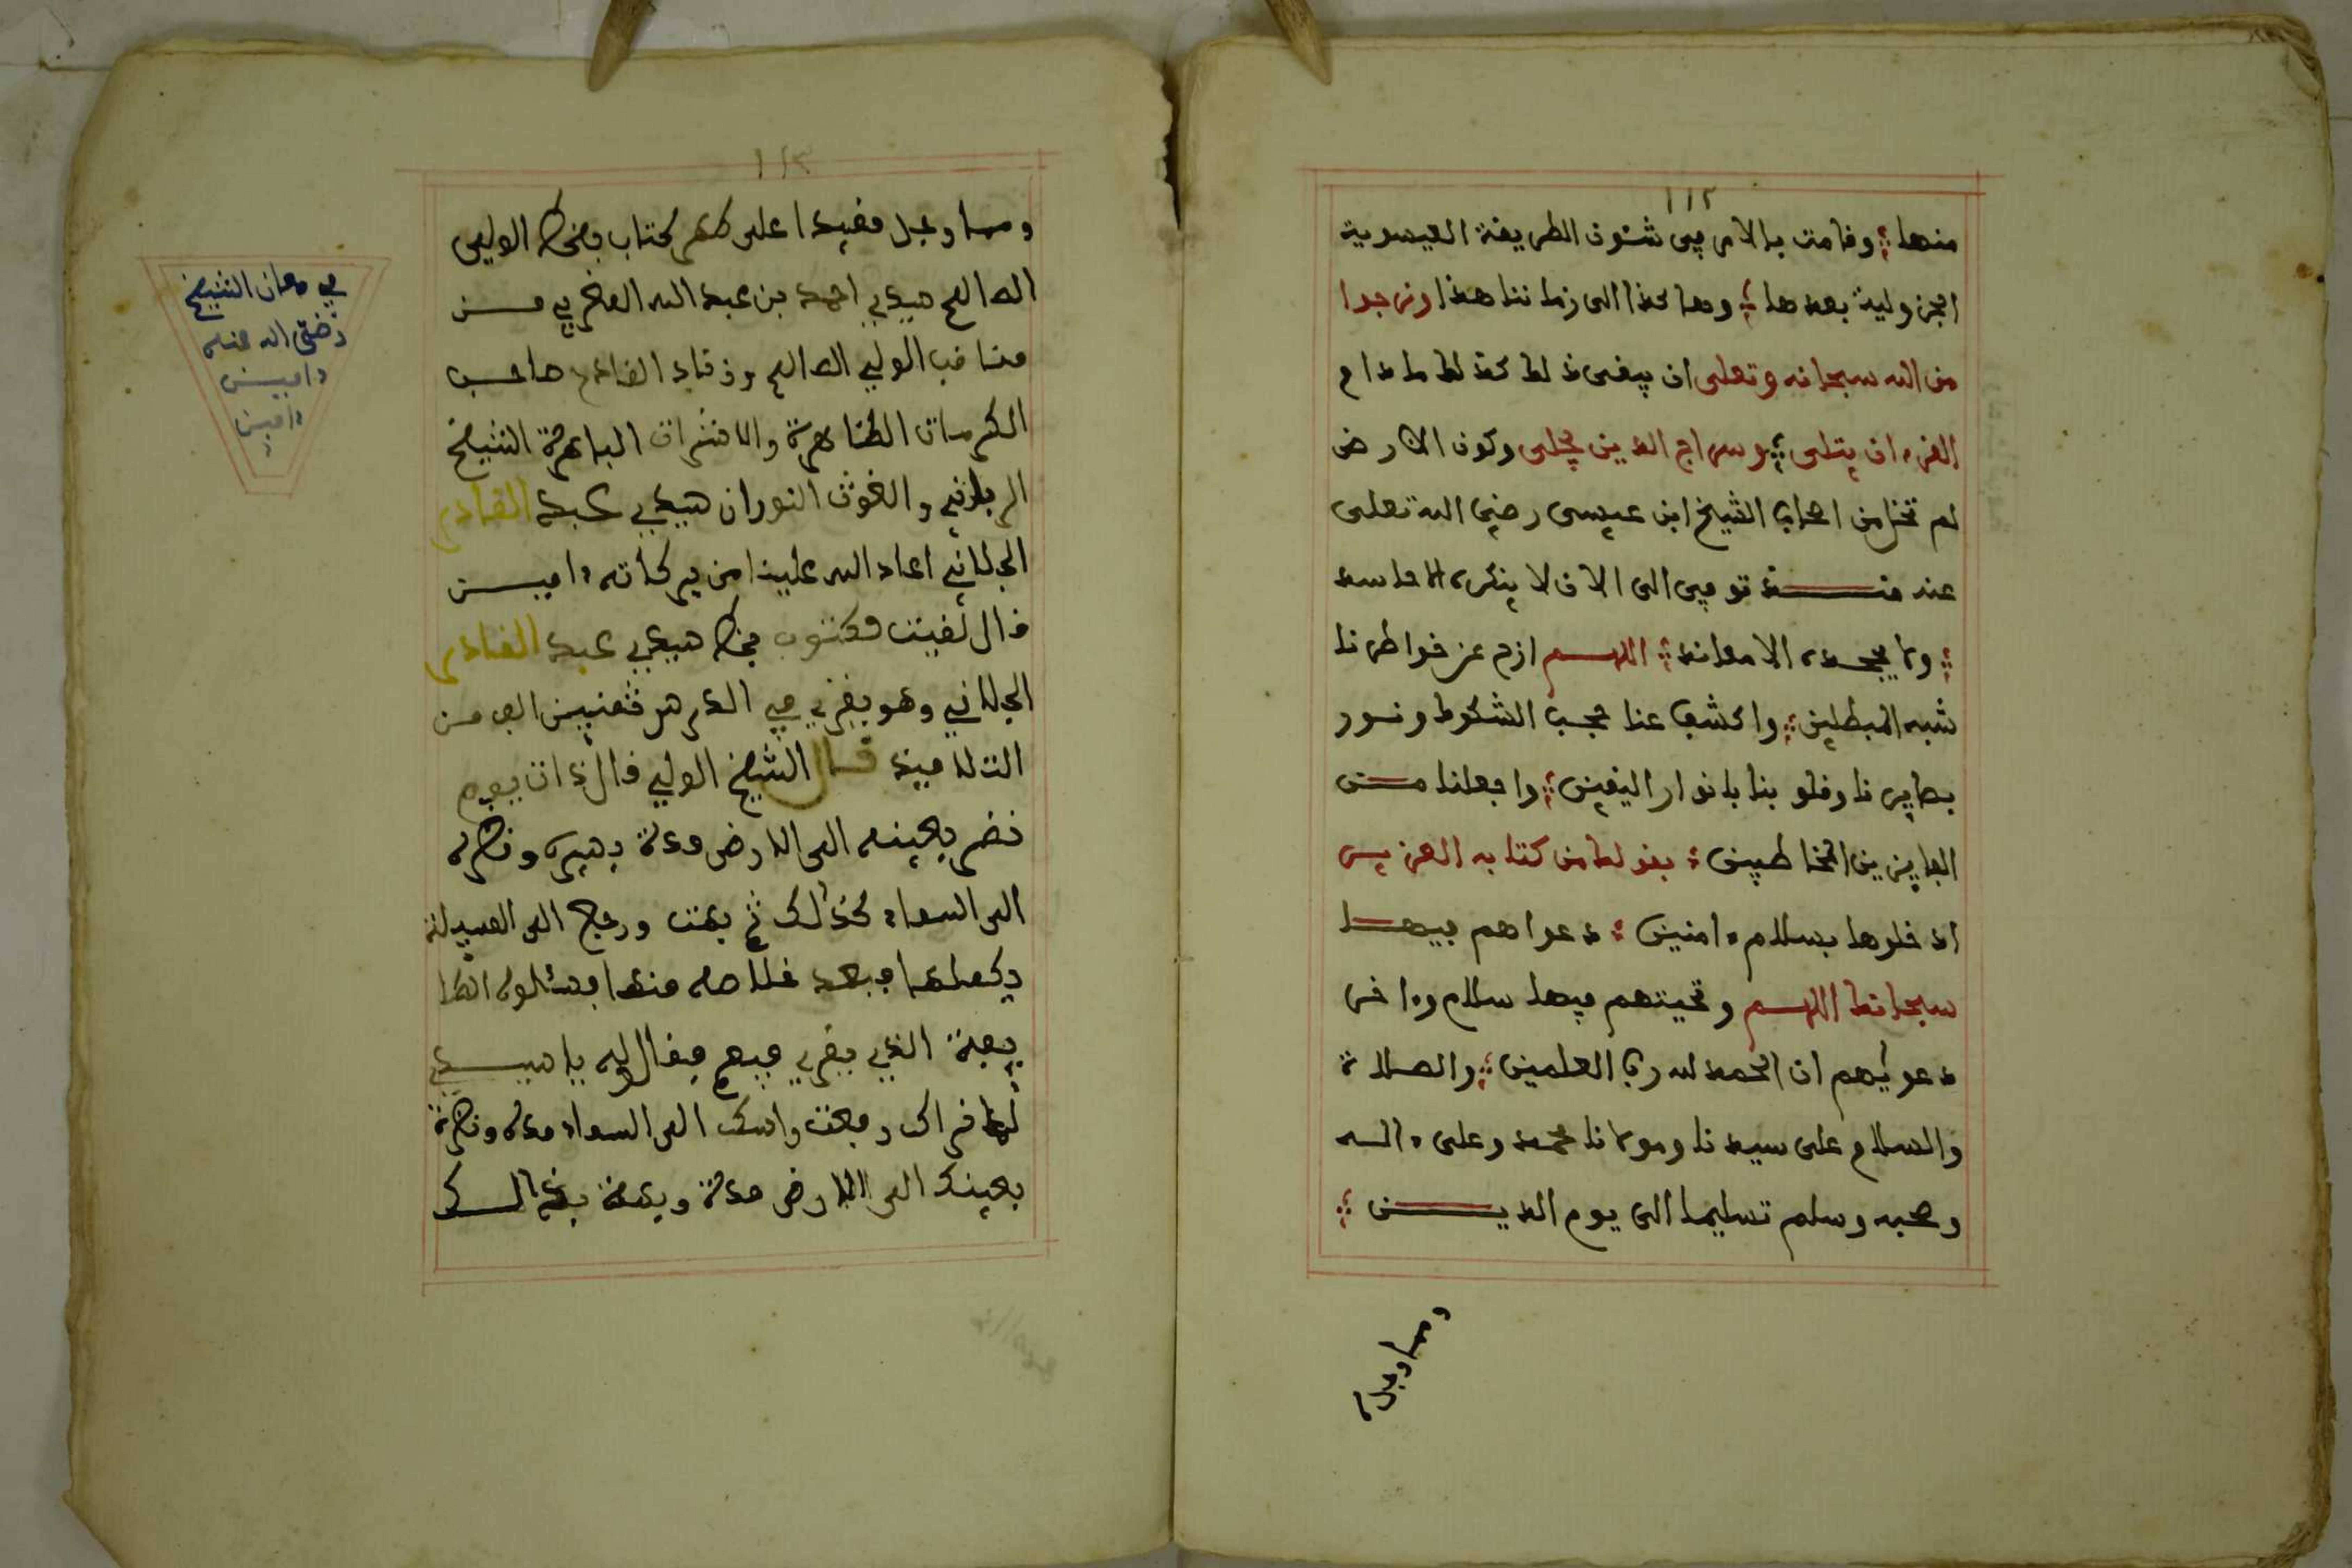 ١١٢
منها؛ وقامت بالامر في شئون الطريقة العيسوية
الجزولية بعدها؛ وهاكذا الى زماننا هذا ونرجوا
من الله سبحانه وتعلى ان يبقى ذلك كذلك ما دام
القرءان يتلى؛ وسراج الدين يجلى وكون الارض
لم تخل من اصحاب الشيخ ابن عيسى رضي الله تعلى
عنه منذ توفي الى الان لا ينكره الا حاسد
؛ ولا يجحده الا معاند؛ اللهم ازح عن خواطرنا
شبه المبطلين؛ واكشف عنا حجب الشكوك ونور
بصايرنا وقلوبنا بانوار اليقين؛ واجعلنا من
الفايزين المخاطبين؛ بقولك من كتابه العزيز
ادخلوها بسلام ءامنين؛ دعواهم فيها
سبحانك اللهم وتحيتهم فيها سلام وءاخر
دعويهم ان الحمد لله رب العلمين؛ والصلاة
والسلام على سيدنا ومولانا محمد وعلى ءاله
وصحبه وسلم تسليما الى يوم الدين؛
ومما وجد
١١٣
ومما وجد مقيدا على ظهر كتاب بخط الولي
الصالح سيدي احمد بن عبد الله من
مناقب الولي الصالح صاحب
الكرمات الظاهرة والاشرات الباهرة الشيخ
الرباني والغوث النوران سيدي عبد القادر
الجلاني اعاد الله علينا من بركاته ءامين
قال لقيت مكتوب بخط سيدي عبد القادر
الجلاني وهو يقري في الدرس الف من
التلاميذ قال الشيخ الولي قال ذات يوم
نضر بعينه الى الارض مدة يسيرة ونظر
الى السماء كذلك ثم بهت ورجع الى المسيلة
يكملها فبعد خلاصه منها فسئلوه الطا
يفة الذي يقري فيهم فقال له يا سيدي
نراك رفعت راسك الى السماء مدة ونظرة
بعينك الى الارض مدة وبهتة بذالك
في ءمان الشيخ
رضي الله عنه
ءامين
ءامين